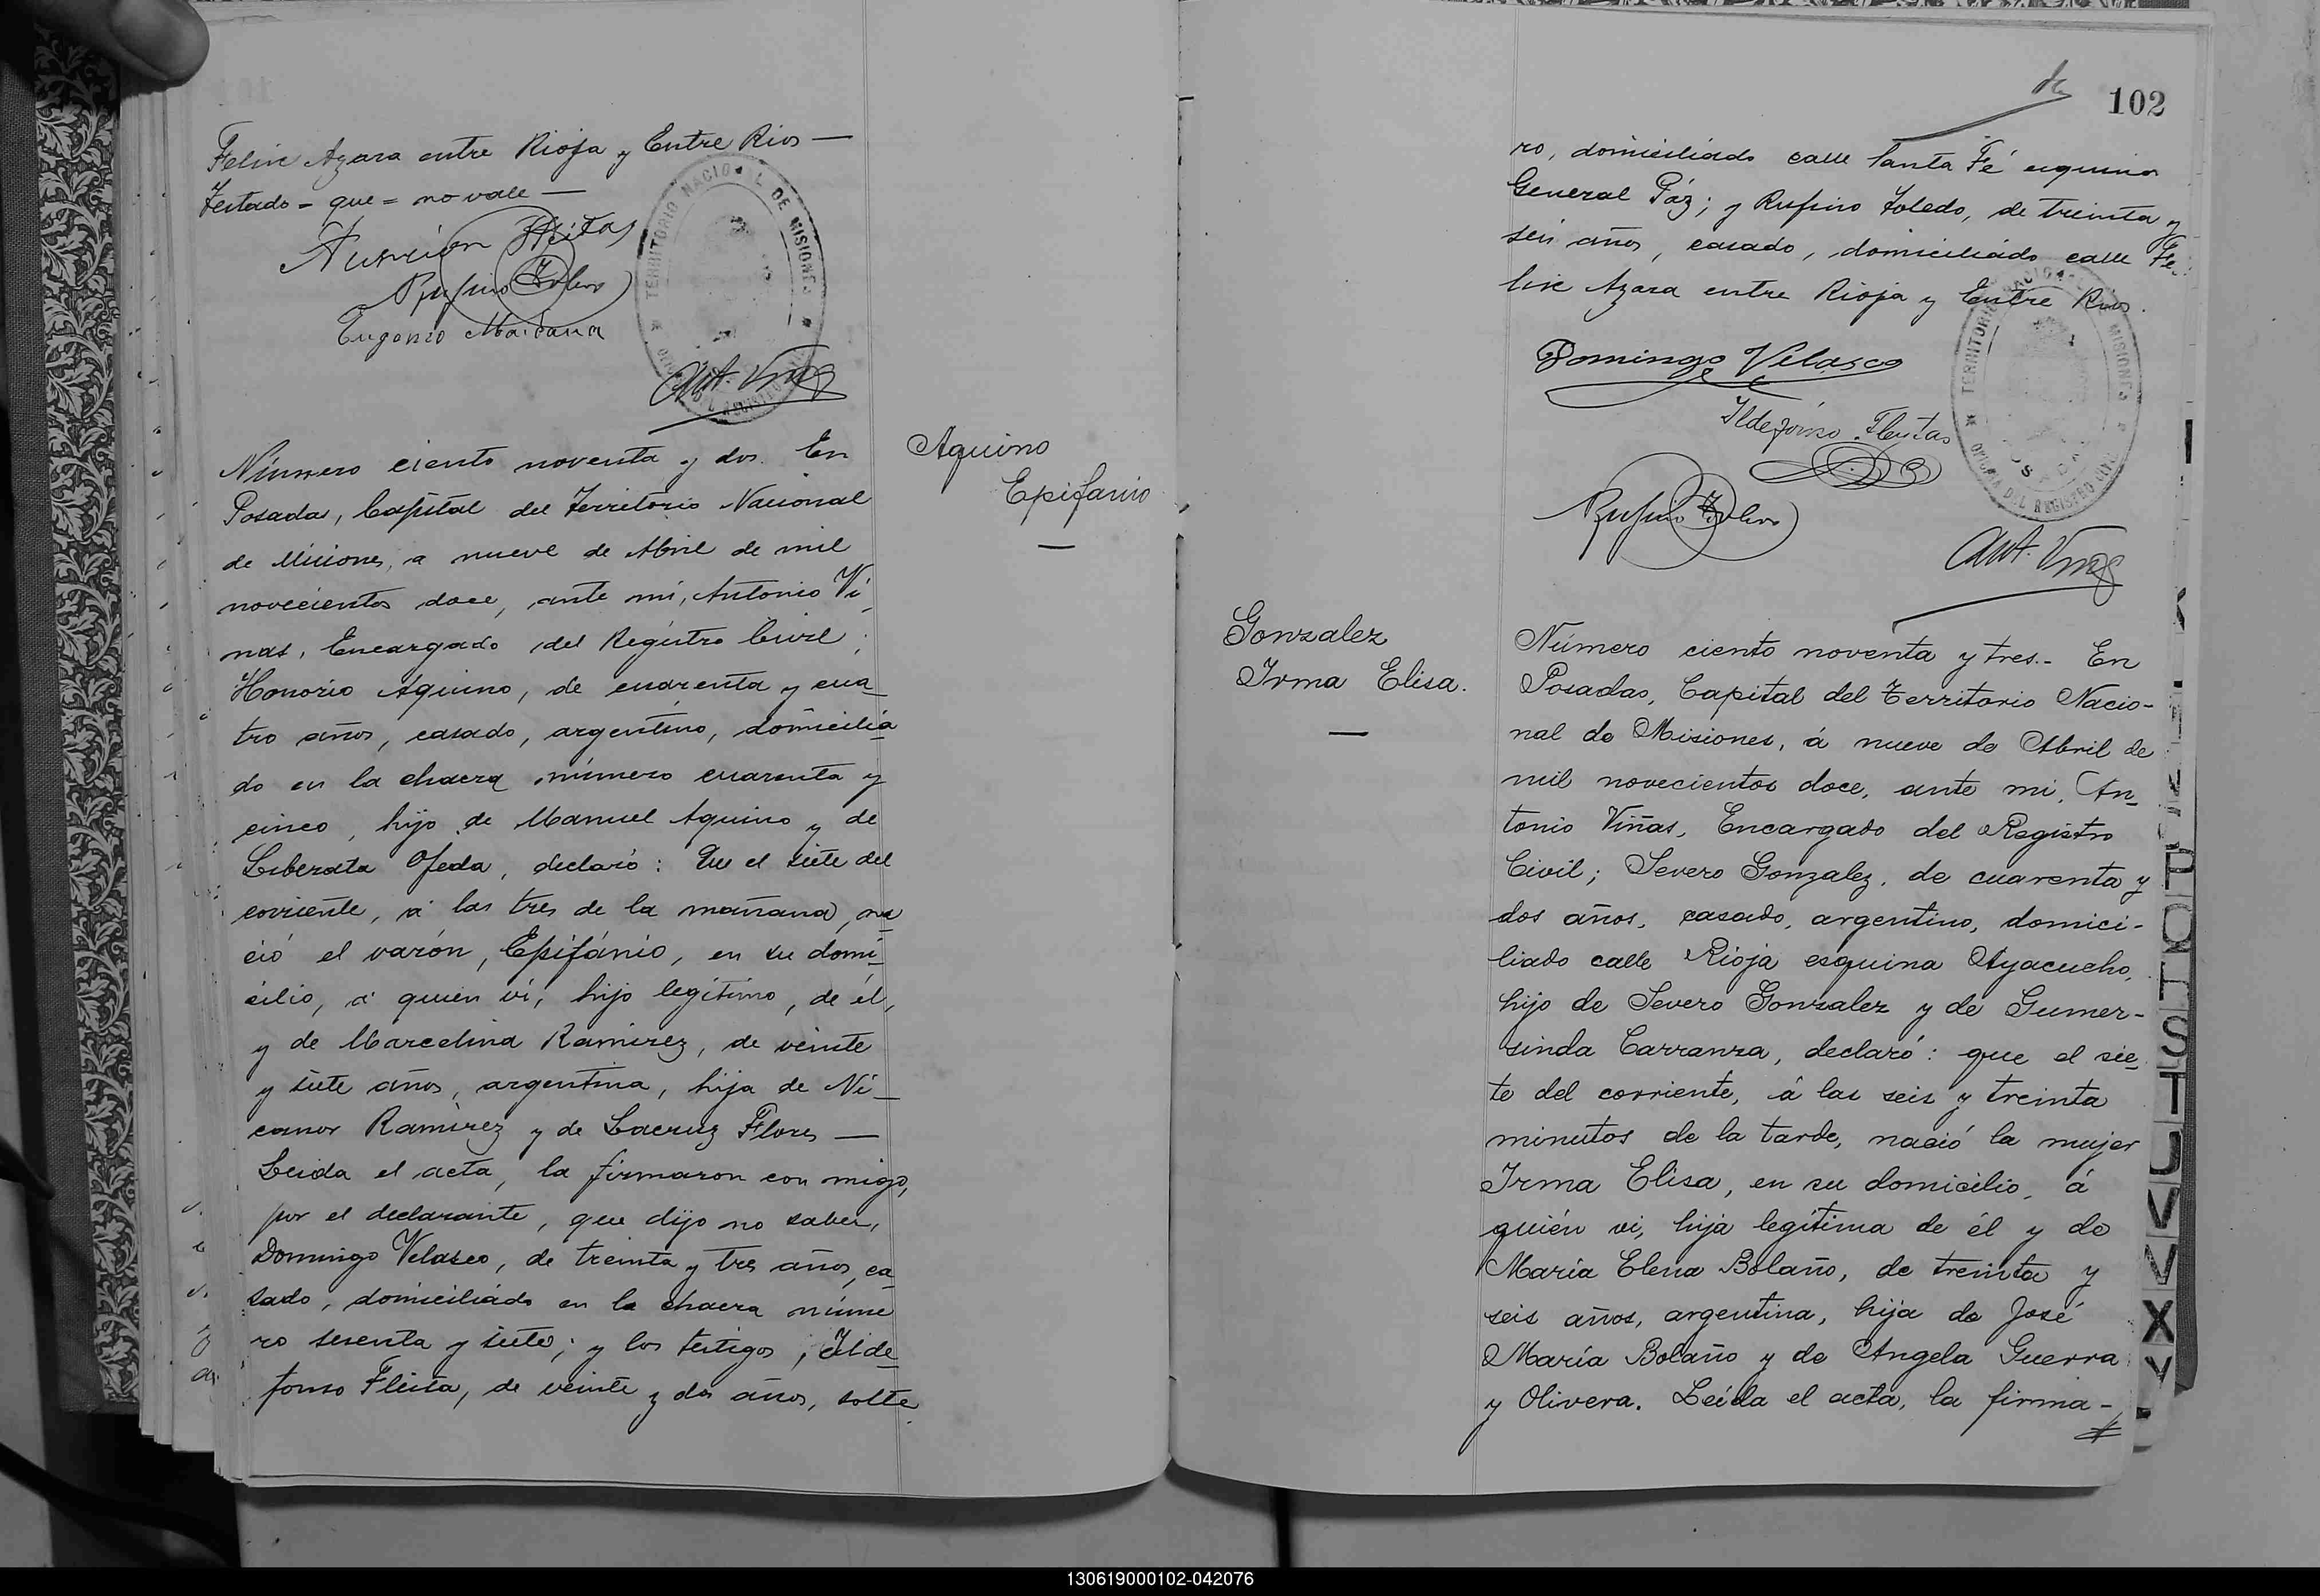 Felix Azara entre Rioja y Entre Rios —
Testado - que = no vale —
Asunción Fleitas
Rufino Toledo
Eugenio Maidana
TERRITORIO NACIONAL DE MISIONES
Ant. Viñas
Aquino
Epifanio
Número ciento noventa y dos. En
Posadas, Capital del Territorio Nacional
de Misiones, a nueve de Abril de mil
novecientos doce, ante mí, Antonio Vi
ñas, Encargado del Registro Civil;
Honorio Aquino, de cuarenta y cua_
tro años, casado, argentino, domicilia
do en la chacra número cuarenta y
cinco, hijo de Manuel Aquino y de
Liberata Ojeda, declaró: Que el siete del
corriente, á las tres de la mañana, na
ció el varón, Epifánio, en su domi_
cilio, á quien ví, hijo legítimo, de él,
y de Marcelina Ramirez, de veinte
y siete años, argentina, hija de Ni_
canor Ramírez y de Lacruz Flores —
Leida el acta, la firmaron con migo,
por el declarante, que dijo no saber,
Domingo Velasco, de treinta y tres años, ca
sado, domiciliado en la chacra núme
ro sesenta y siete; y los testigos, Ilde_
fonso Fleita, de veinte y dos años, solte
102
ro, domiciliado calle Santa Fé esquina
General Páz; y Rufino Toledo, de treinta y
seis años, casado, domiciliado calle Fe
lix Azara entre Rioja y Entre Rios.
Domingo Velasco
Ildefonso Fleitas
Rufino Toledo
TERRITORIO NACIONAL DE MISIONES
OFICINA DEL REGISTRO CIVIL
POSADAS
Ant. Viñas
Gonzalez
Irma Elisa.
Número ciento noventa y tres.- En
Posadas, Capital del Territorio Nacio-
nal de Misiones, á nueve de Abril de
mil novecientos doce, ante mi, An_
tonio Viñas, Encargado del Registro
Civil; Severo Gonzalez, de cuarenta y
dos años, casado, argentino, domici-
liado calle Rioja esquina Ayacucho,
hijo de Severo Gonzalez y de Gumer-
sinda Carranza, declaró: que el sie_
te del corriente, á las seis y treinta
minutos de la tarde, nació la mujer
Irma Elisa, en su domicilio, á
quién vi, hija legítima de él y de
María Elena Bolaño, de treinta y
seis años, argentina, hija de José
María Bolaño y de Angela Guerra
y Olivera. Leída el acta, la firma-
P
Q
S
T
U
V
X
Y
130619000102-042076